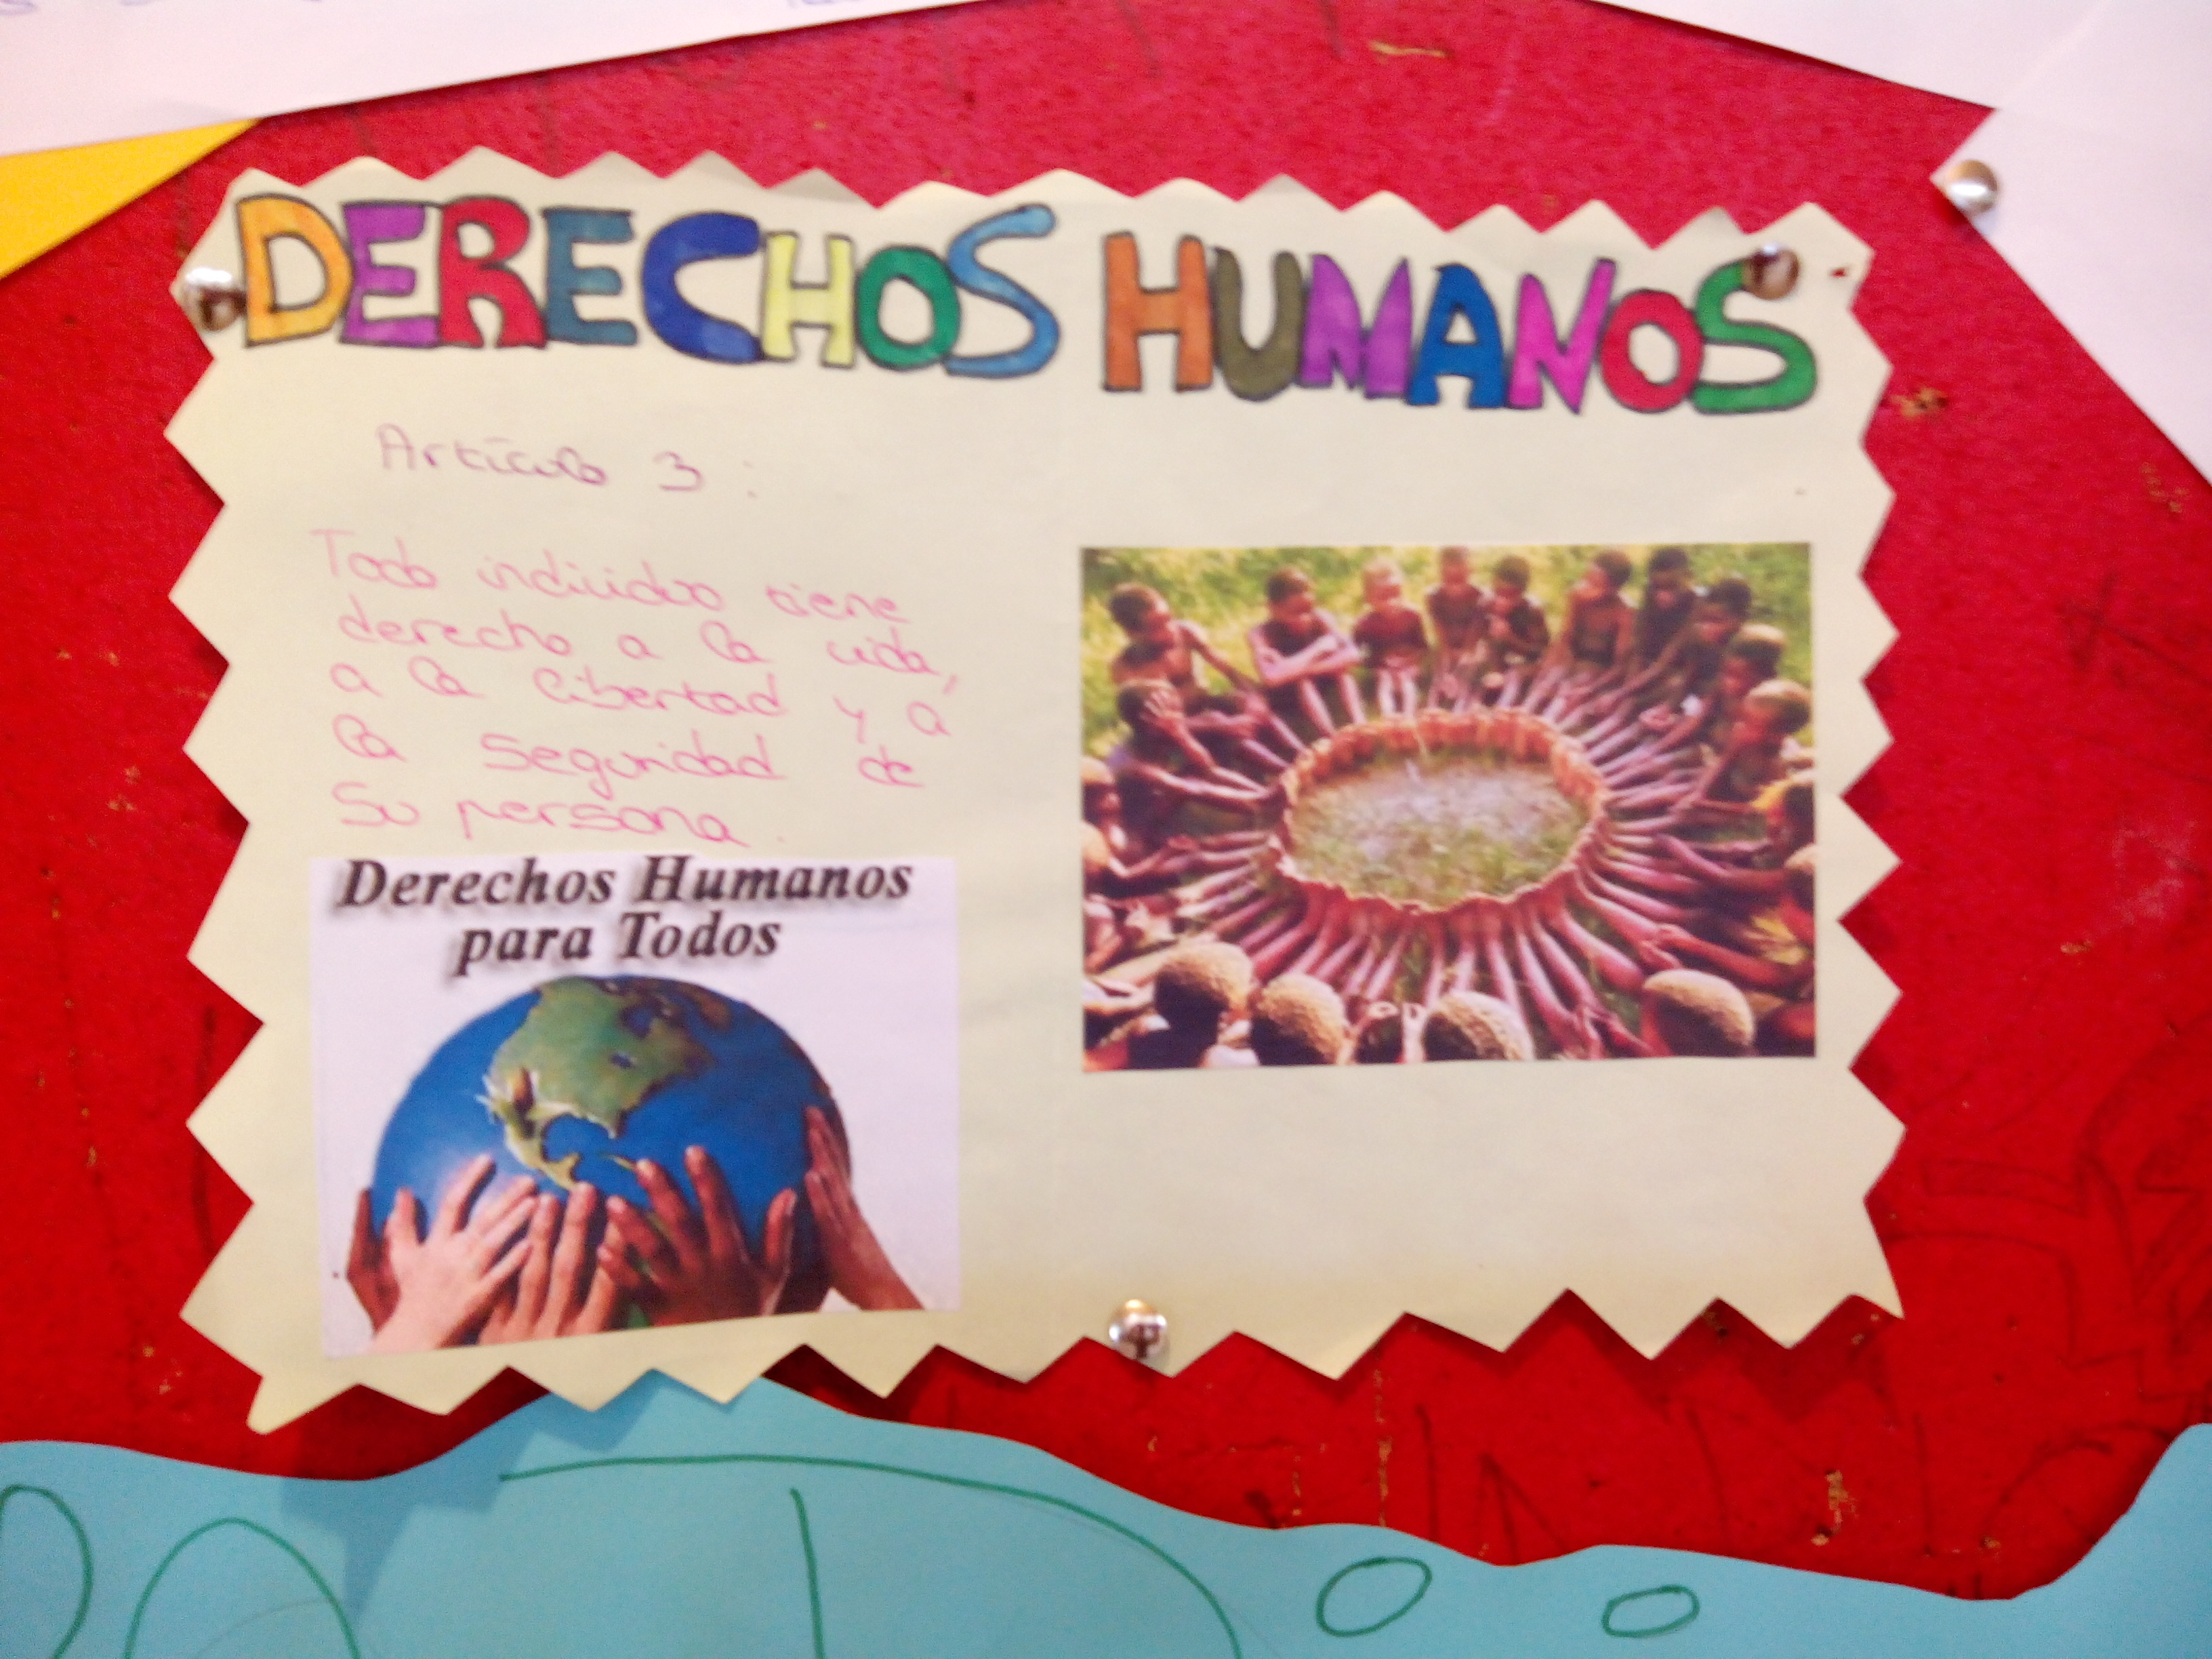 DERECHOS HUMANOS
Artículo 3:
Todo individuo tiene
derecho a la vida,
a la libertad y a
la seguridad de
su persona.
Derechos Humanos
para Todos